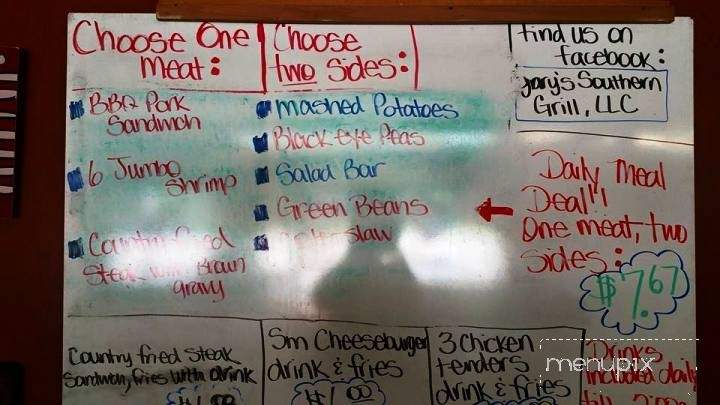 Choose One
Meat:
BBQ Pork
Sandwich
6 Jumbo
Shrimp
Country Fried
Steak with Brown
gravy
Choose
two sides:
Mashed Potatoes
Black eye Peas
Salad Bar
Green Beans
Slaw
find us on
facebook:
Gary's Southern
Grill, LLC
Daily Meal
Deal!!
One meat, two
sides:
$7.67
Country fried steak
Sandwich, fries with drink
Sm Cheeseburger
drink & fries
3 Chicken
tenders
drink & fries
Drinks
included daily
till
menupix